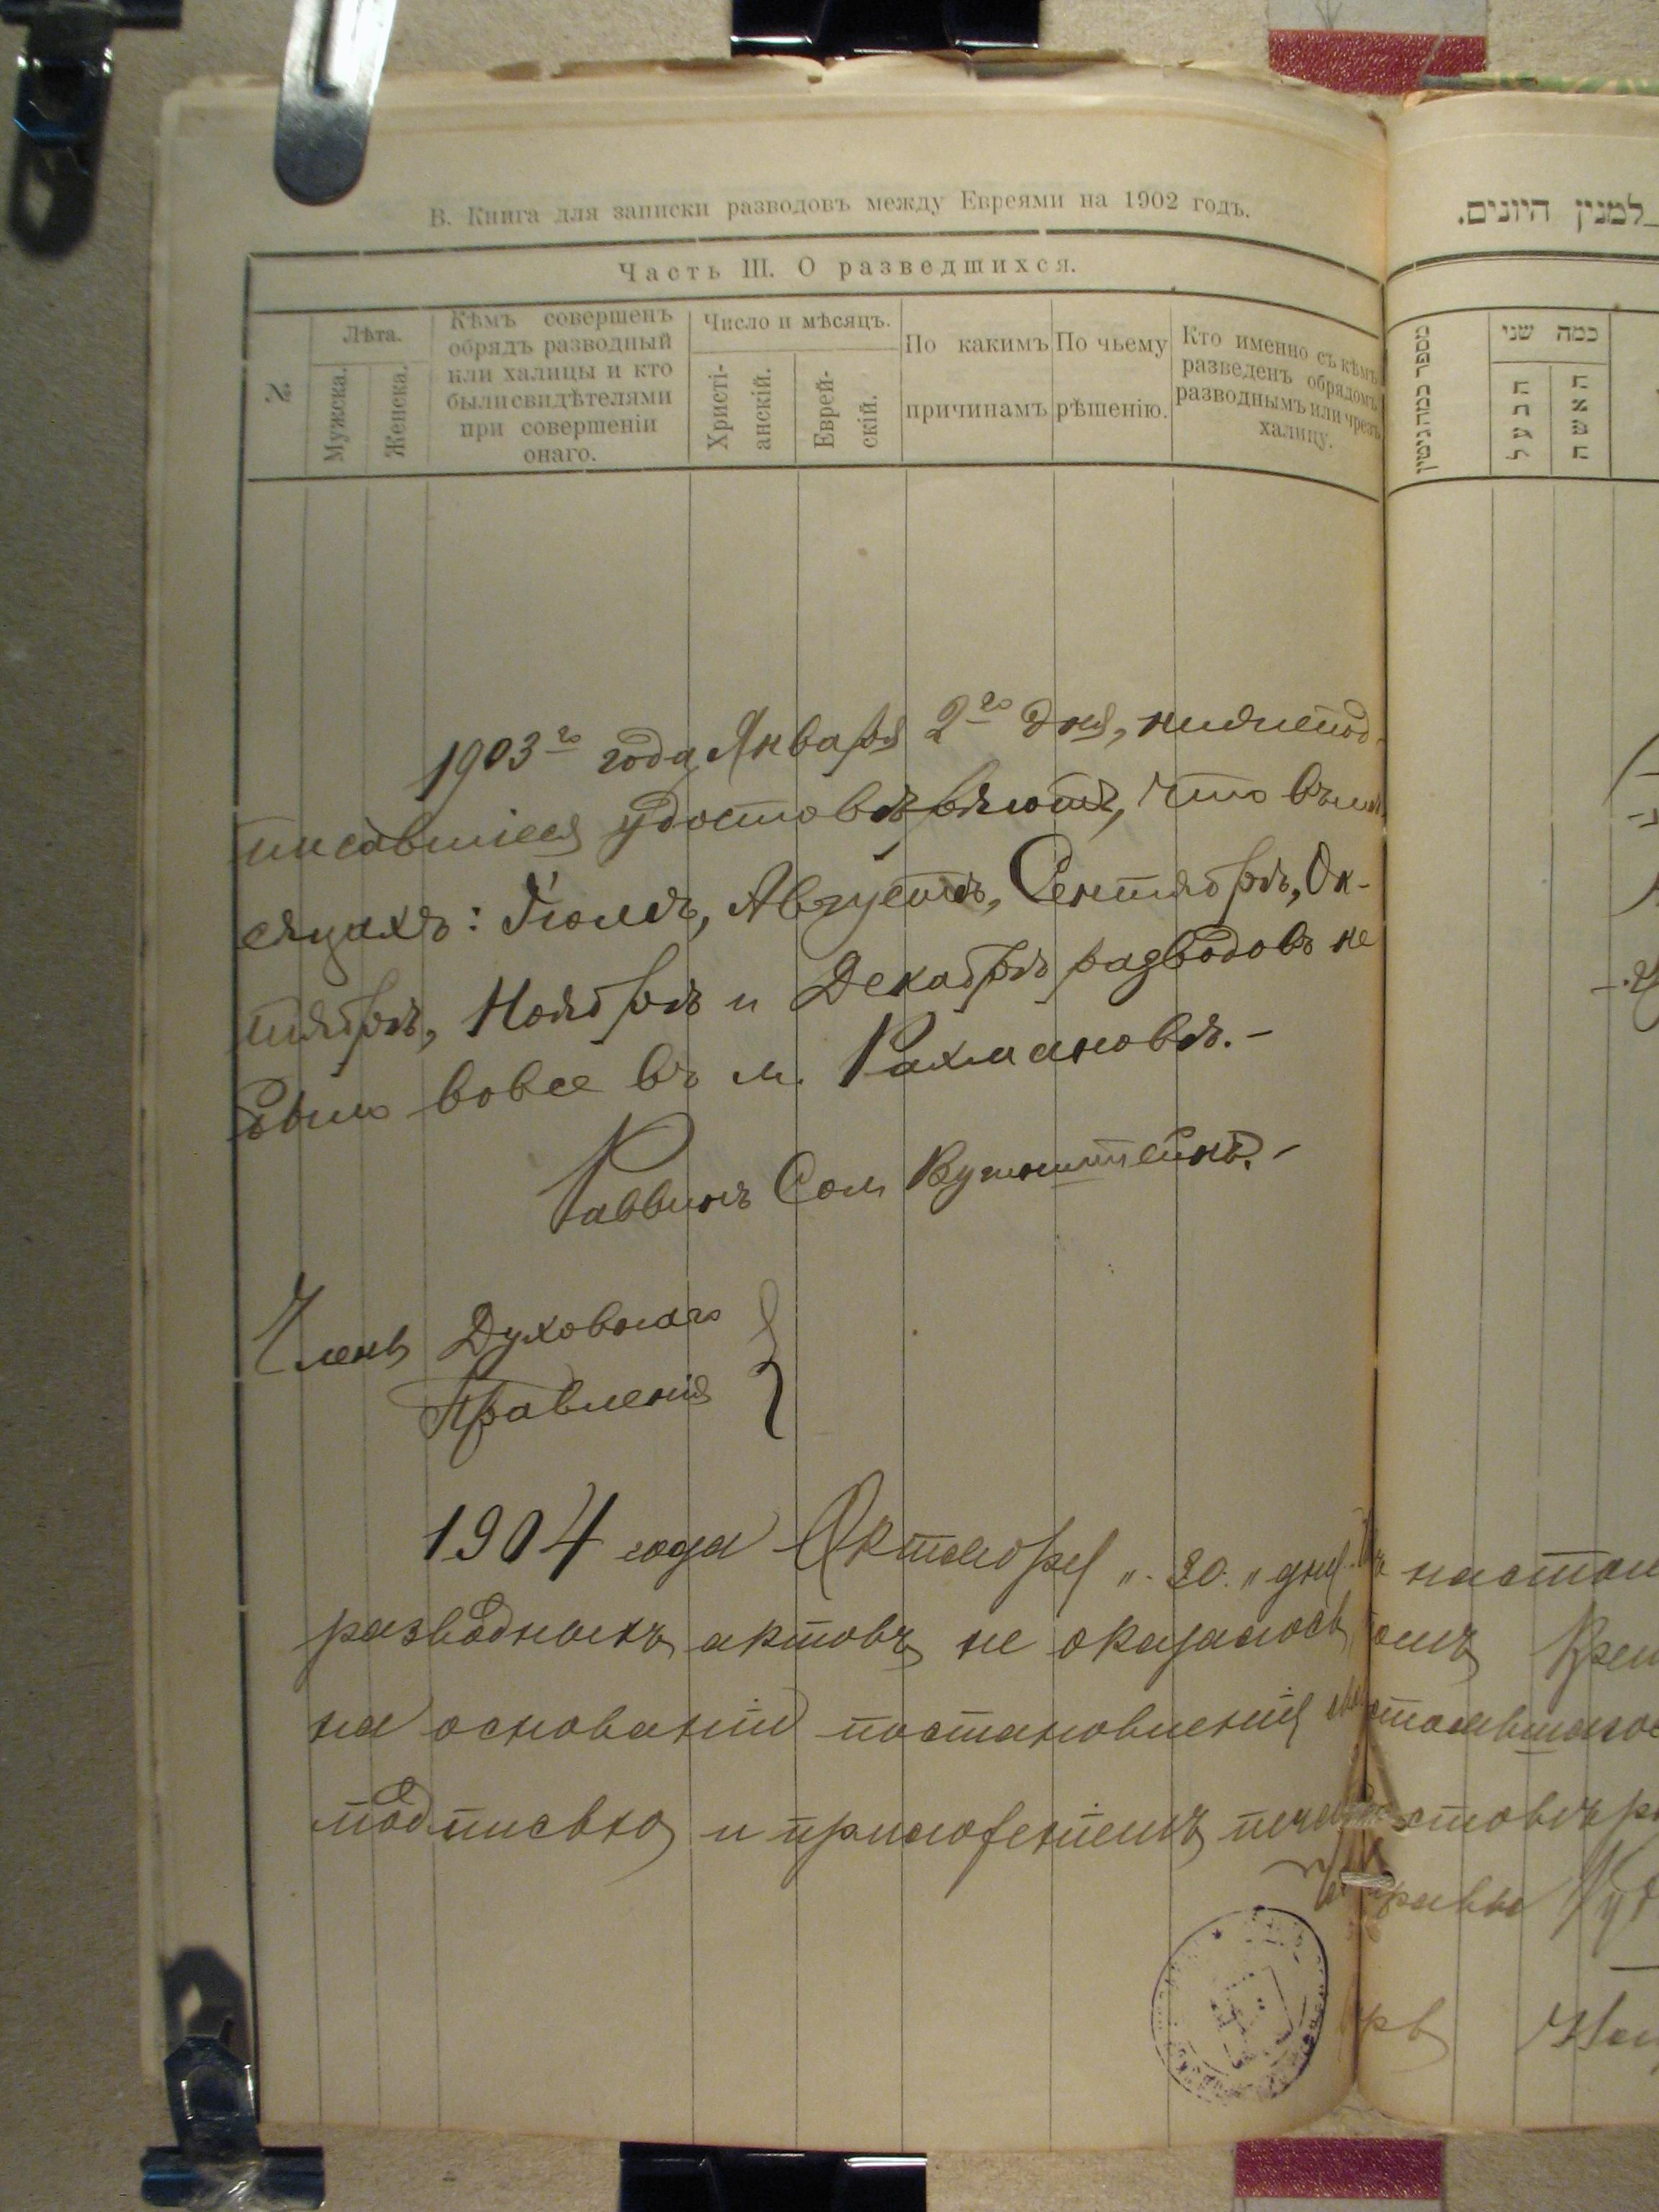 В. Книга для записки разводовъ между Евреями на 1902 годъ.
למנין היונים.
Часть III. О разведшихся.
№.
Лѣта.
Мужска.
Женска.
Кѣмъ совершенъ
обрядъ разводный
или халицы и кто
были свидѣтелями
при совершеніи
онаго.
Число и мѣсяцъ.
Христі-
анскій.
Еврей-
скій.
По какимъ
причинамъ
По чьему
рѣшенію.
Кто именно съ кѣмъ
разведенъ обрядомъ
разводнымъ или чрезъ
халицу.
כמה שני
הבעל
האשה
1903го года Января 2го дня, нижепод-
писавшіеся удостовѣряютъ, что въ мѣ
сяцахъ: Іюлѣ, Августѣ, Сентябрѣ, Ок-
тябрѣ, Ноябрѣ и Декабрѣ разводовъ не
было вовсе въ м. Рахмановѣ.-
Раввинъ Сол
Члены Духовнаго
Правленія
1904 года Октября „20„ дня
разводныхъ актовъ не оказалось
на основаніи постановленія
подписью и приложеніемъ